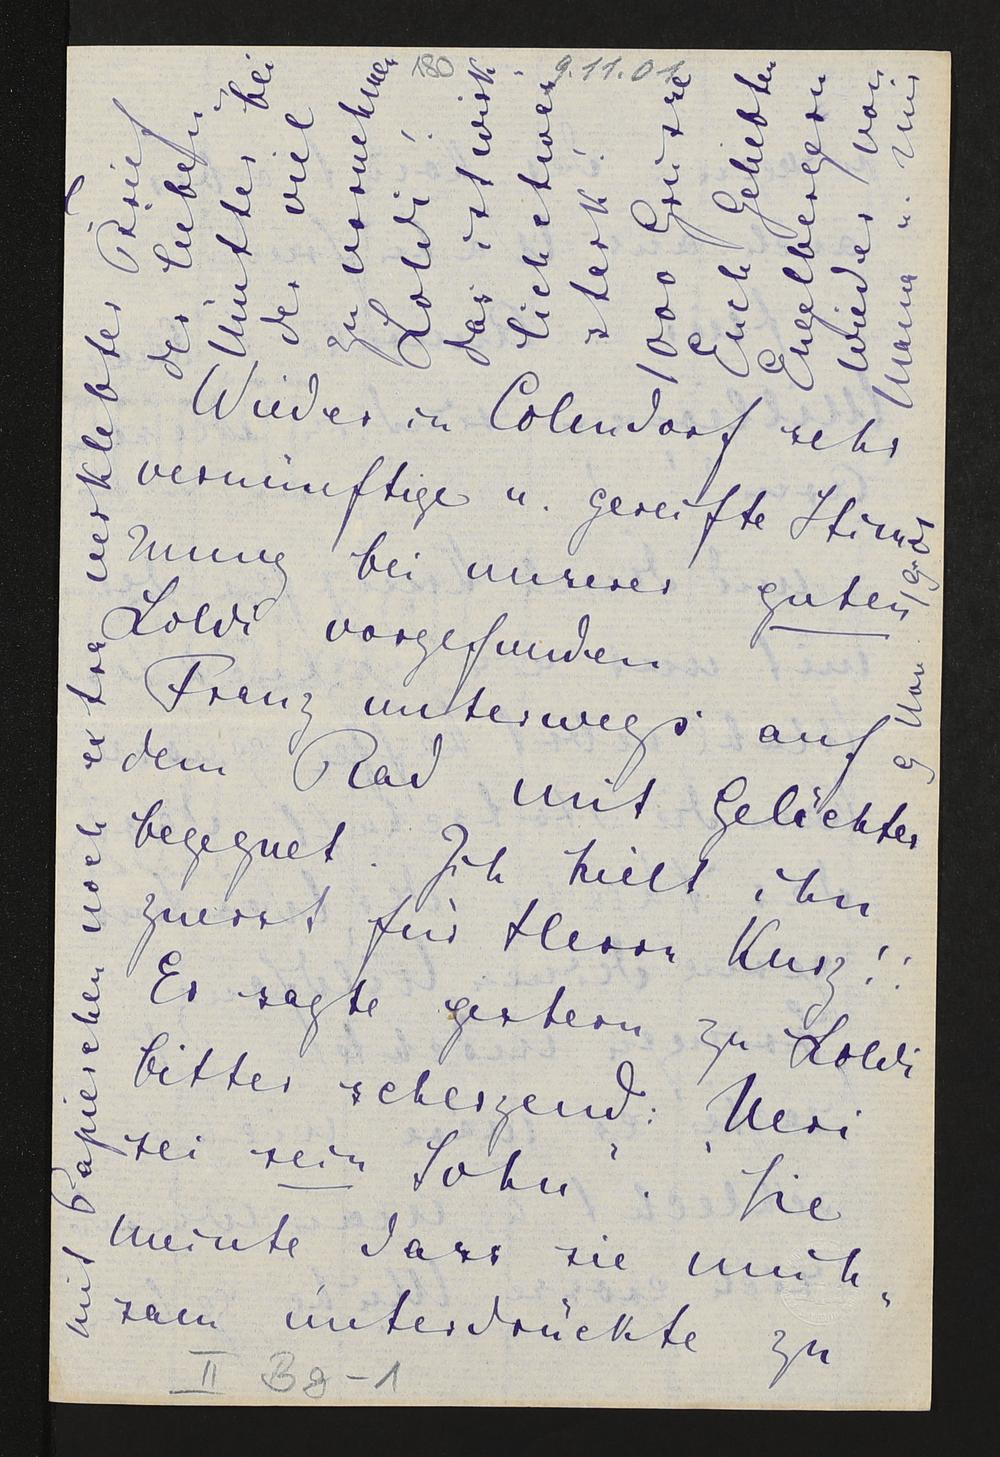 180
9.11.01
9 Nov. 1901
Wieder in Colendorf sehr
vernünftige u. gereifte Stim
mung bei unserer guten
Loldi vorgefunden
Franz unterwegs auf
dem Rad mit Gelächter
begegnet. Ich hielt ihn
zuerst für Herrn Kurz!!
Er sagte gestern zu Loldi
bitter scherzend: „Veri
sei sein Sohn". Sie
meinte dass sie müh„
sam unterdrückte zu
mit Papierchen noch extra verklebter Brief
der lieben
Mutter bei
der viel
zu vornehmen
Loldi!
das ist wirk
lich etwas
stark!
1000 Grüsse
Euch Geliebten
Engelbergern
wieder von
Mama u. mir
II Bg-1